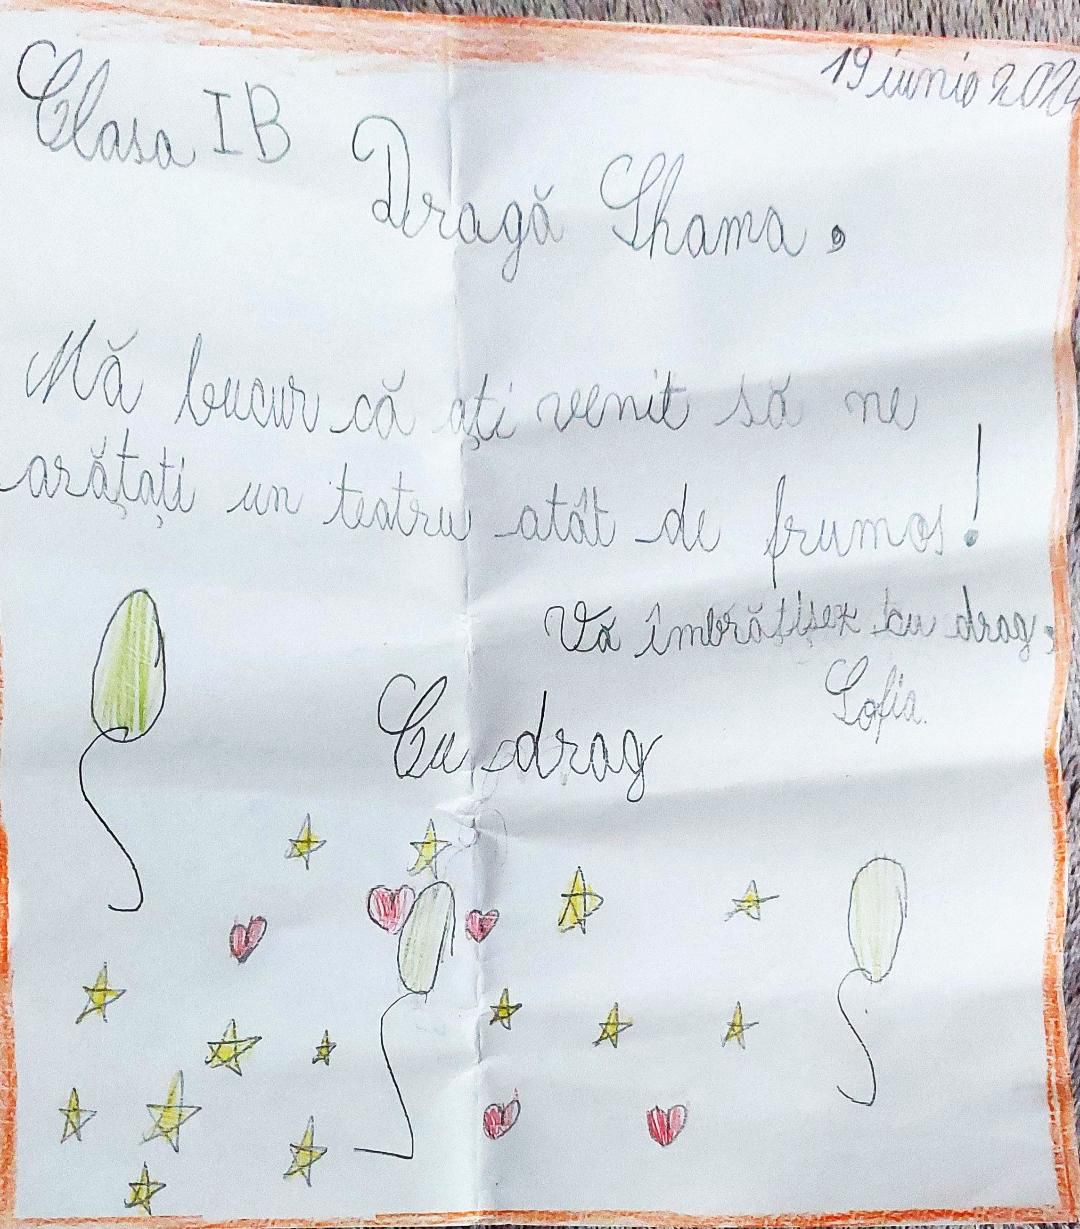 19 iunie 202
Clasa I B
Dragă Shama,
Mă bucur că ați venit să ne
arătați un teatru atât de frumos!
Vă îmbrățișez cu drag,
Sofia.
Cu drag